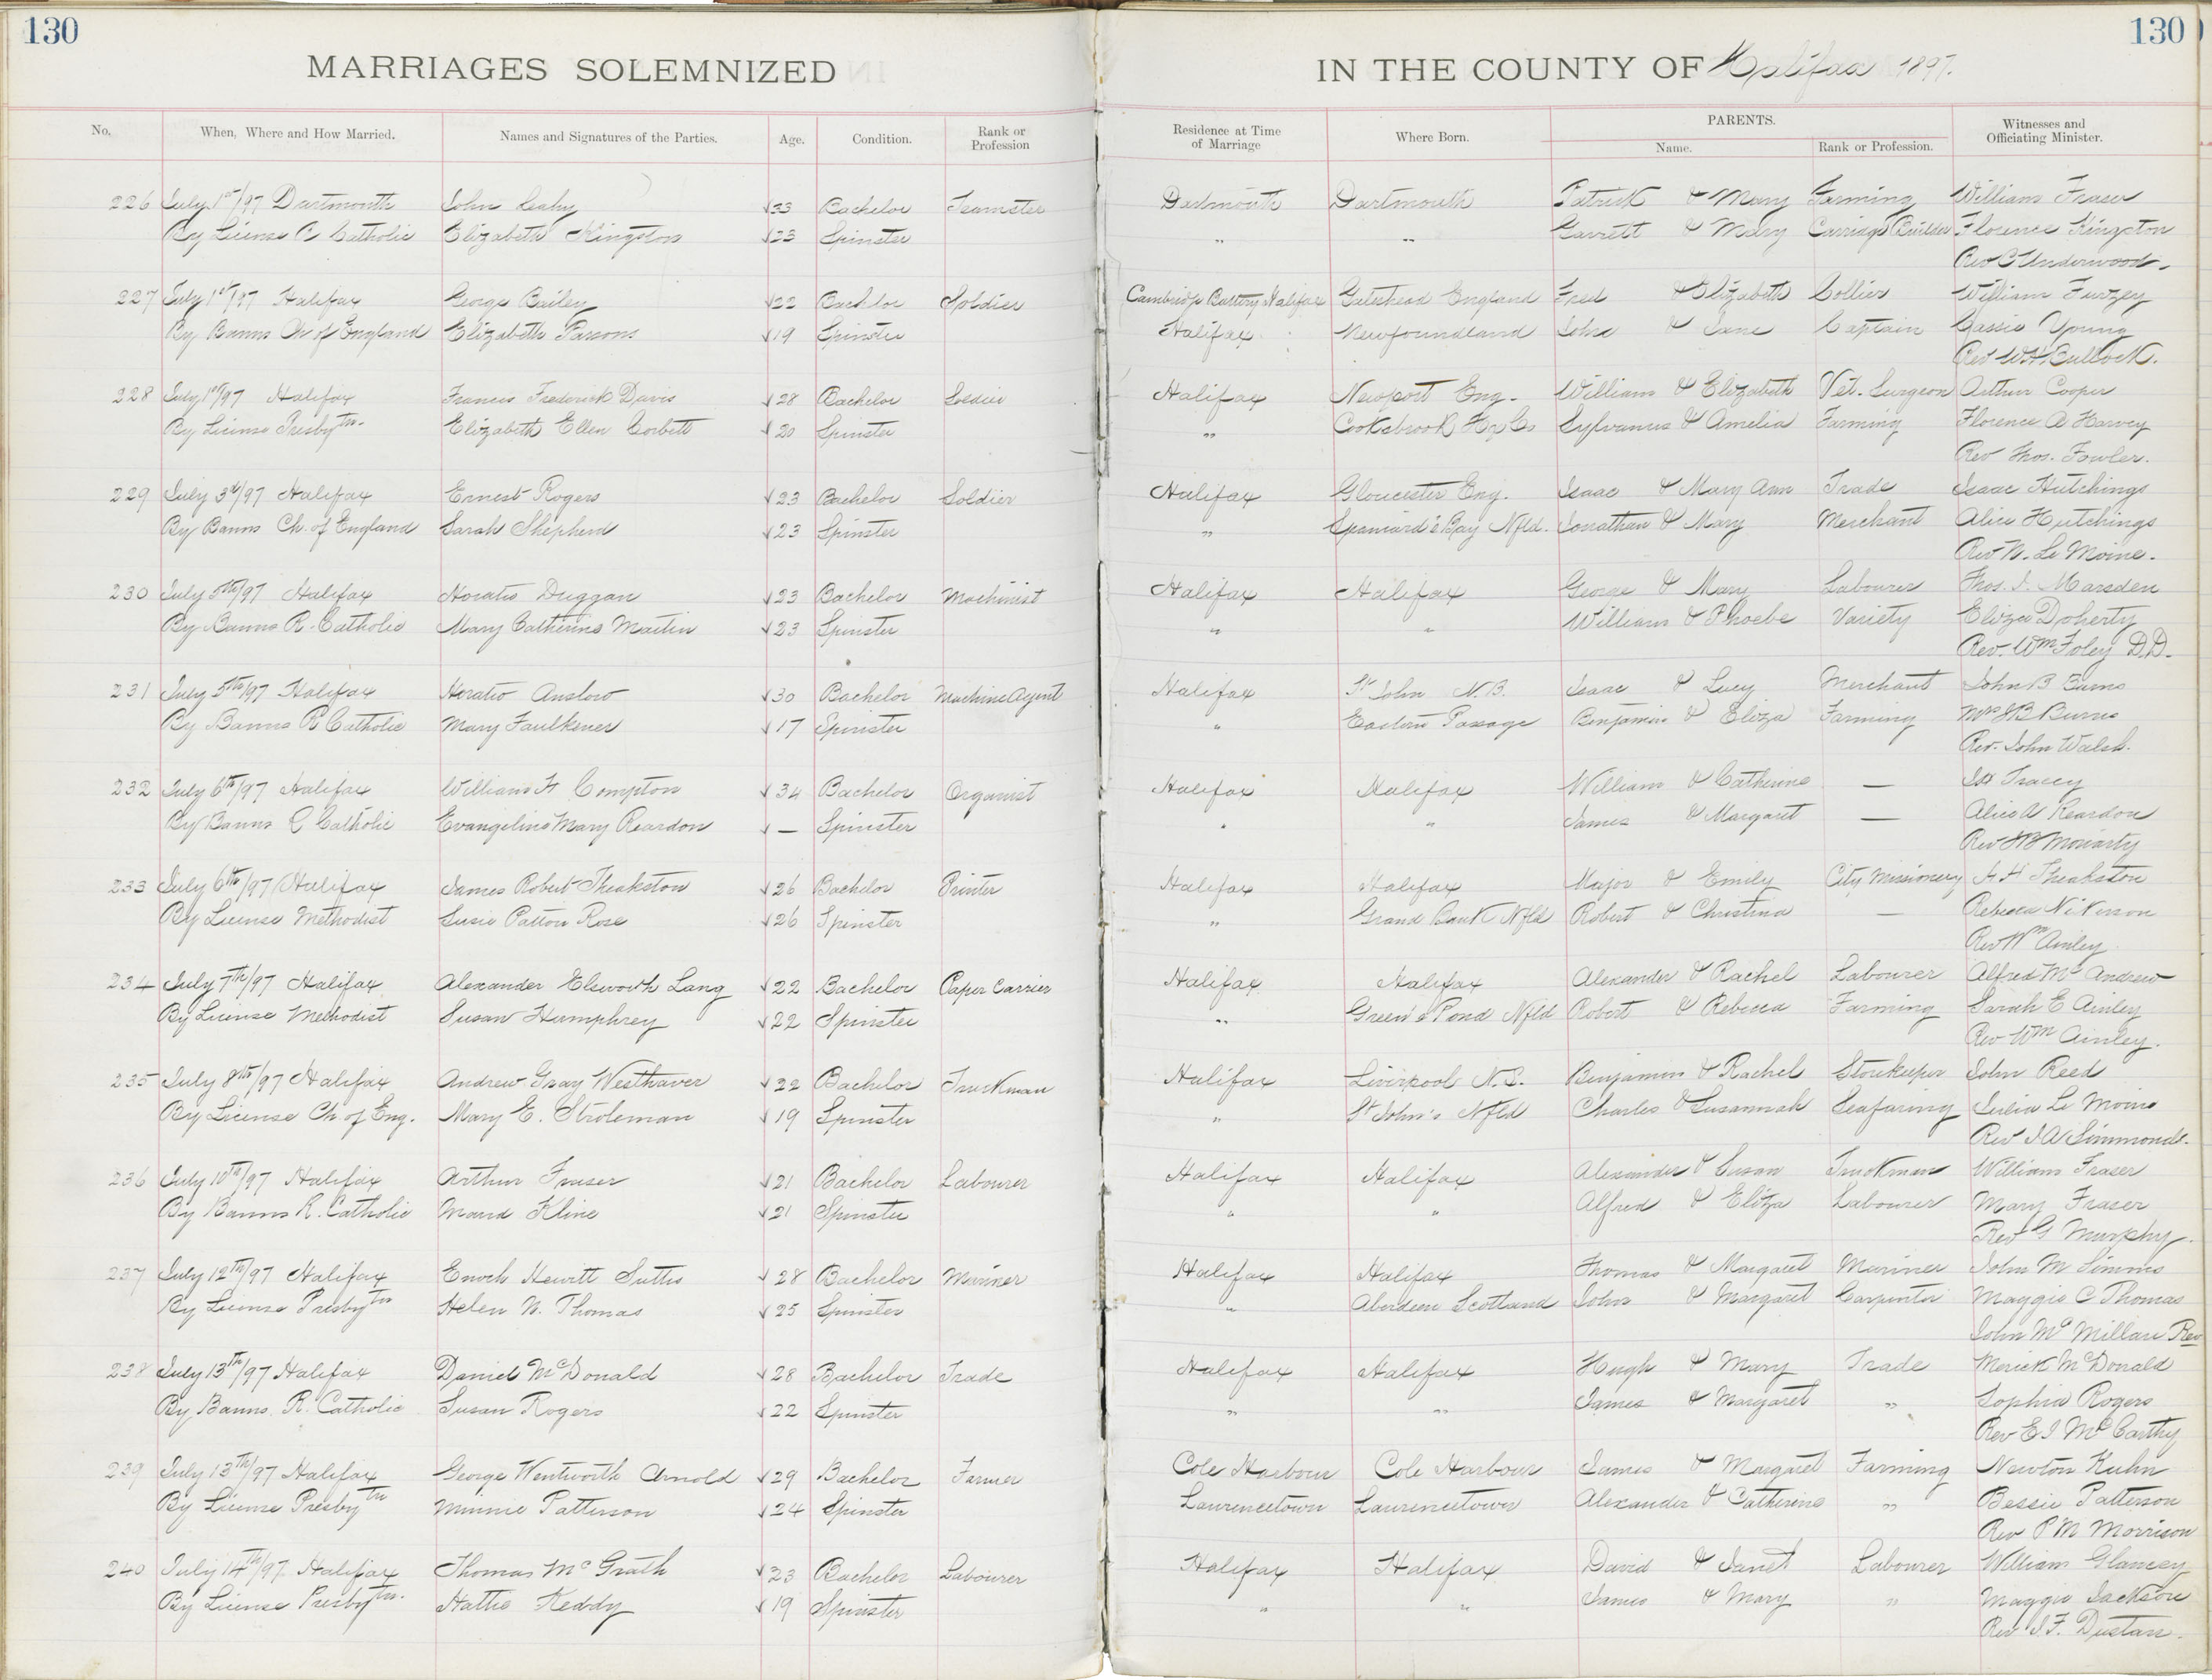 130
130
MARRIAGES SOLEMNIZED
IN THE COUNTY OF Halifax 1897.
No. When, Where and How Married. Names and Signatures of the Parties. Age. Condition. Rank or Profession Residence at Time of Marriage Where Born. PARENTS. Name. Rank or Profession. Witnesses and Officiating Minister.
226 July 1st/97 Dartmouth John Leahy 33 Bachelor Teamster Dartmouth Dartmouth Patrick & Mary Farming William Fraser
By License R Catholic Elizabeth Kingston 23 Spinster " " Garrett & Mary Carriage Builder Florence Kingston
Rev C Underwood.
227 July 1st/97 Halifax George Bailey 22 Bachelor Soldier Cambridge Battery Halifax Gateshead England Fred & Elizabeth Collier William Furzey
By Banns Ch of England Elizabeth Parsons 19 Spinster Halifax Newfoundland John & Jane Captain Cassie Young
Rev W.H. Bullock.
228 July 1st/97 Halifax Francis Frederick Davis 28 Bachelor Soldier Halifax Newport Eng. William & Elizabeth Vet. Surgeon Arthur Cooper
By License Presbytn. Elizabeth Ellen Corbett 20 Spinster " Cooksbrook Sylvanus & Amelia Farming Florence A Harvey
Rev Thos. Fowler.
229 July 3d/97 Halifax Ernest Rogers 23 Bachelor Soldier Halifax Gloucester Eng. Isaac & Mary Ann Trade Isaac Hutchings
By Banns Ch. of England Sarah Shepherd 23 Spinster " Spaniard's Bay Nfld. Jonathan & Mary Merchant Alice Hutchings
Rev N. Le Moine.
230 July 5th/97 Halifax Horatio Duggan 23 Bachelor Machinist Halifax Halifax George & Mary Labourer Thos. J. Marsden
By Banns R. Catholic Mary Catherine Martin 23 Spinster " " William & Phoebe Variety Eliza Doherty
Rev. Wm Foley D.D.
231 July 5th/97 Halifax Horatio Anslow 30 Bachelor Machine Agent Halifax St John N.B. Isaac & Lucy Merchant John B Burns
By Banns R Catholic Mary Faulkener 17 Spinster " Eastern Passage Benjamin & Eliza Farming Mrs J B Burns
Rev. John Walsh.
232 July 6th/97 Halifax William H Compton 34 Bachelor Organist Halifax Halifax William & Catherine — Tracey
By Banns R Catholic Evangeline Mary Reardon — Spinster " " James & Margaret — Alice A Reardon
Rev Moriarty
233 July 6th/97 Halifax James Robert Theakston 26 Bachelor Printer Halifax Halifax Major & Emily City Missionery A H Theakston
By License Methodist Susie Patton Rose 26 Spinster " Grand Bank Nfld Robert & Christina — Rebecca Nikerson
Rev Wm Ainley
234 July 7th/97 Halifax Alexander Elsworth Lang 22 Bachelor Paper Carrier Halifax Halifax Alexander & Rachel Labourer Alfred Mc Andrew
By License Methodist Susan Humphrey 22 Spinster " Green's Pond Nfld Robert & Rebecca Farming Sarah E Ainley
Rev Wm Ainley.
235 July 8th/97 Halifax Andrew Gray Westhaver 22 Bachelor Truckman Halifax Liverpool N.S. Benjamin & Rachel Storekeeper John Reed
By License Ch of Eng. Mary E. Stroleman 19 Spinster " St John's Nfld Charles & Susannah Seafaring Julia Le Moine
Rev J A Simmonds.
236 July 10th/97 Halifax Arthur Fraser 21 Bachelor Labourer Halifax Halifax Alexander & Susan Truckman William Fraser
By Banns R. Catholic Maud Kline 21 Spinster " " Alfred & Eliza Labourer Mary Fraser
Rev G Murphy.
237 July 12th/97 Halifax Enoch Hewitt Suttis 28 Bachelor Mariner Halifax Halifax Thomas & Margaret Mariner John M Simms
By License Presbytn Helen N. Thomas 25 Spinster " Aberdeen Scotland John & Margaret Carpenter Maggie C Thomas
John Mc Millan Rev
238 July 13th/97 Halifax Daniel McDonald 28 Bachelor Trade Halifax Halifax Hugh & Mary Trade Merick McDonald
By Banns. R. Catholic Susan Rogers 22 Spinster " " James & Margaret " Sophia Rogers
Rev E J McCarthy
239 July 13th/97 Halifax George Wentworth Arnold 29 Bachelor Farmer Cole Harbour Cole Harbour James & Margaret Farming Newton Kuhn
By License Presbytn Minnie Patterson 24 Spinster Laurencetown Laurencetown Alexander & Catherine " Bessie Patterson
Rev P M Morrison
240 July 14th/97. Halifax Thomas McGrath 23 Bachelor Labourer Halifax Halifax David & Janet Labourer William Glancey
By License Presbytn. Hattie Keddy 19 Spinster " " James & Mary " Maggie Jackson
Rev J. F. Dustan.